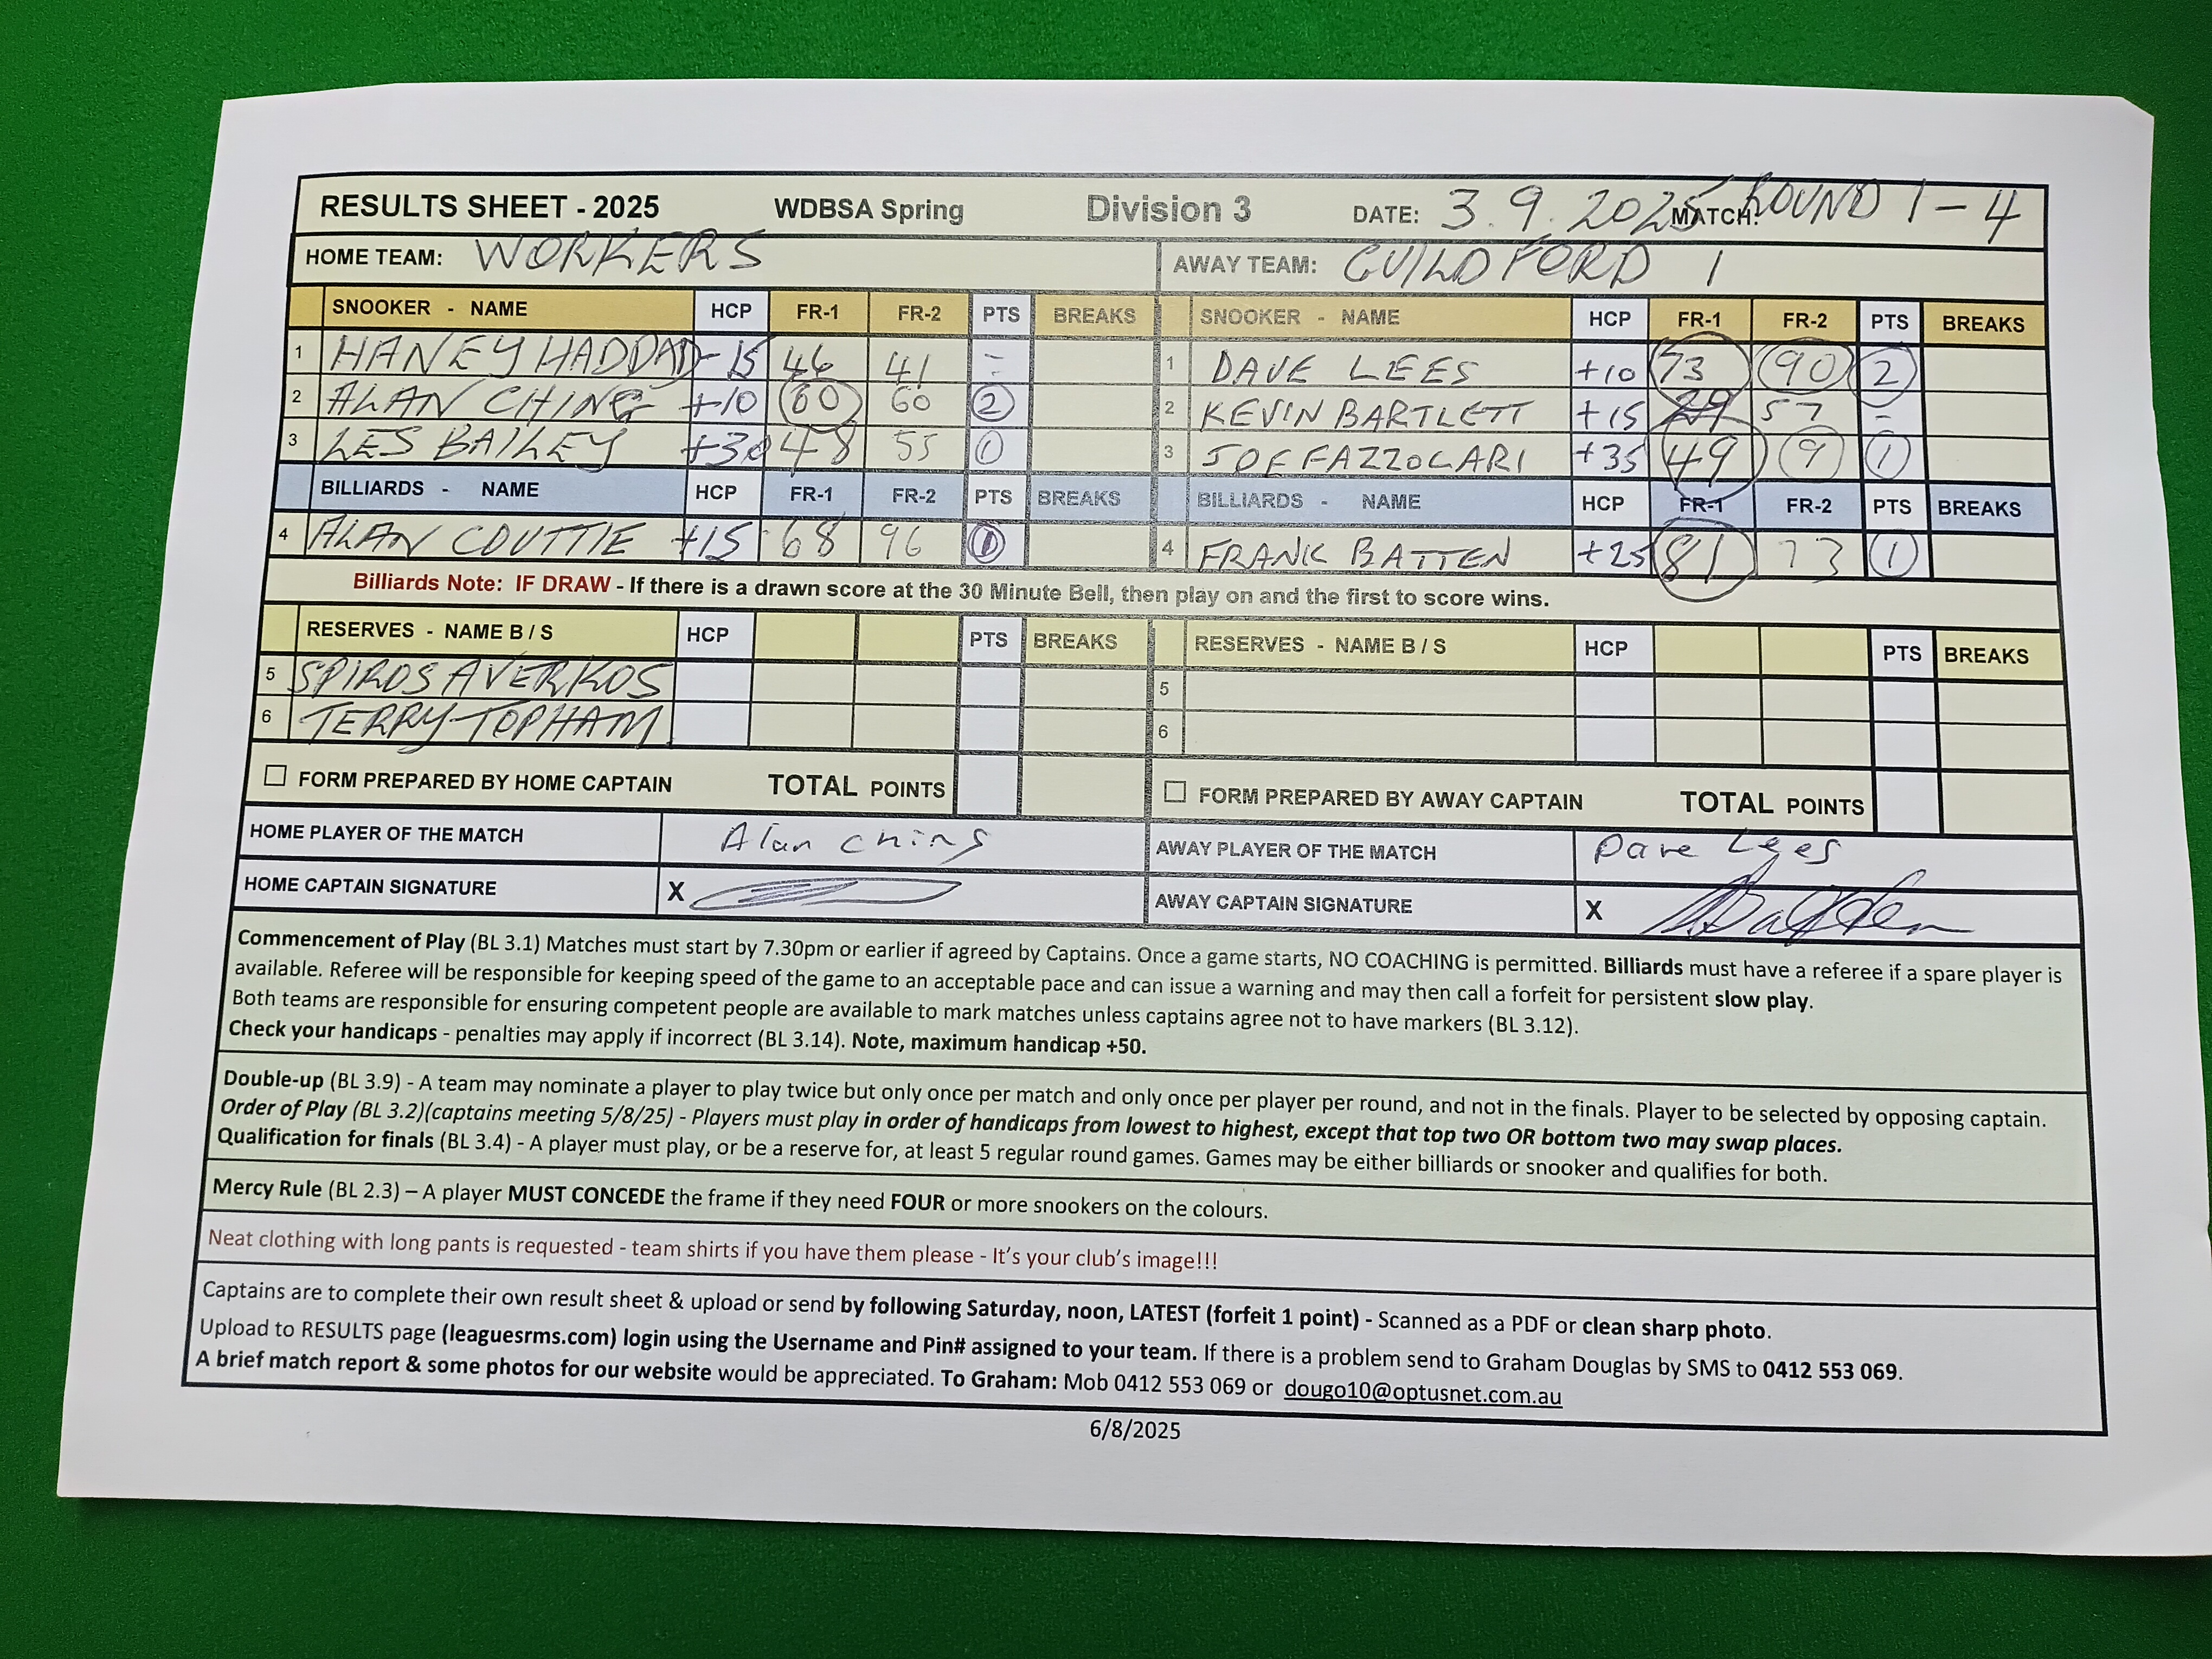 RESULTS SHEET - 2025 WDBSA Spring Division 3 DATE: 3.9.2025 MATCH: ROUND 1-4
HOME TEAM: WORKERS AWAY TEAM: GUILDFORD 1
SNOOKER - NAME HCP FR-1 FR-2 PTS BREAKS SNOOKER - NAME HCP FR-1 FR-2 PTS BREAKS
1 HANEY HADDAD -15 46 41 - 1 DAVE LEES +10 73 90 2
2 ALAN CHING +10 60 60 2 2 KEVIN BARTLETT +15 29 57 -
3 LES BAILEY +30 48 55 1 3 JOE FAZZOLARI +35 49 9 1
BILLIARDS - NAME HCP FR-1 FR-2 PTS BREAKS BILLIARDS - NAME HCP FR-1 FR-2 PTS BREAKS
4 ALAN COUTTIE +15 68 96 1 4 FRANK BATTEN +25 81 73 1
Billiards Note: IF DRAW - If there is a drawn score at the 30 Minute Bell, then play on and the first to score wins.
RESERVES - NAME B / S HCP PTS BREAKS RESERVES - NAME B / S HCP PTS BREAKS
5 SPIROS AVERKOS 5
6 TERRY TOPHAM 6
FORM PREPARED BY HOME CAPTAIN TOTAL POINTS FORM PREPARED BY AWAY CAPTAIN TOTAL POINTS
HOME PLAYER OF THE MATCH Alan Ching AWAY PLAYER OF THE MATCH Dave Lees
HOME CAPTAIN SIGNATURE X AWAY CAPTAIN SIGNATURE X
Commencement of Play (BL 3.1) Matches must start by 7.30pm or earlier if agreed by Captains. Once a game starts, NO COACHING is permitted. Billiards must have a referee if a spare player is
available. Referee will be responsible for keeping speed of the game to an acceptable pace and can issue a warning and may then call a forfeit for persistent slow play.
Both teams are responsible for ensuring competent people are available to mark matches unless captains agree not to have markers (BL 3.12).
Check your handicaps - penalties may apply if incorrect (BL 3.14). Note, maximum handicap +50.
Double-up (BL 3.9) - A team may nominate a player to play twice but only once per match and only once per player per round, and not in the finals. Player to be selected by opposing captain.
Order of Play (BL 3.2)(captains meeting 5/8/25) - Players must play in order of handicaps from lowest to highest, except that top two OR bottom two may swap places.
Qualification for finals (BL 3.4) - A player must play, or be a reserve for, at least 5 regular round games. Games may be either billiards or snooker and qualifies for both.
Mercy Rule (BL 2.3) – A player MUST CONCEDE the frame if they need FOUR or more snookers on the colours.
Neat clothing with long pants is requested - team shirts if you have them please - It's your club's image!!!
Captains are to complete their own result sheet & upload or send by following Saturday, noon, LATEST (forfeit 1 point) - Scanned as a PDF or clean sharp photo.
Upload to RESULTS page (leaguesrms.com) login using the Username and Pin# assigned to your team. If there is a problem send to Graham Douglas by SMS to 0412 553 069.
A brief match report & some photos for our website would be appreciated. To Graham: Mob 0412 553 069 or dougo10@optusnet.com.au
6/8/2025